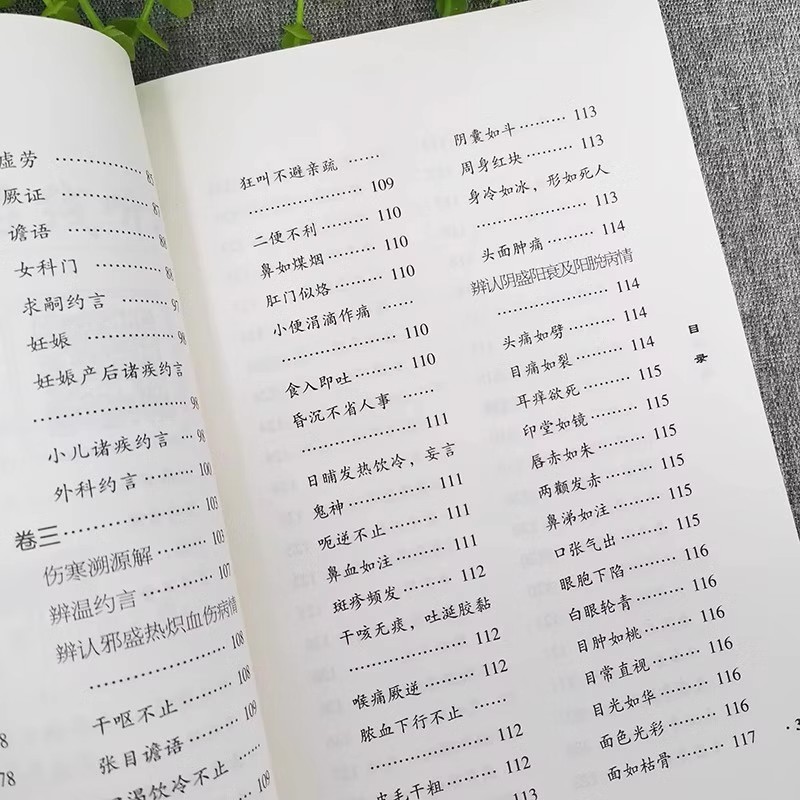 虚劳 …… 85
厥证 …… 87
谵语 …… 88
女科门 …… 88
求嗣约言 …… 97
妊娠 …… 98
妊娠产后诸疾约言
…… 98
小儿诸疾约言 … 98
外科约言 …… 100
卷三 …… 103
伤寒溯源解 …… 103
辨温约言 …… 107
辨认邪盛热炽血伤病情
…… 108
干呕不止 …… 108
张目谵语 …… 109
渴饮冷不止 … 109
8
78
狂叫不避亲疏 ……
…… 109
二便不利 …… 110
鼻如煤烟 …… 110
肛门似烙 …… 110
小便涓滴作痛
…… 110
食入即吐 …… 110
昏沉不省人事 ……
…… 111
日晡发热饮冷，妄言
鬼神 …… 111
呃逆不止 …… 111
鼻血如注 …… 111
斑疹频发 …… 112
干咳无痰，吐涎胶黏
…… 112
喉痛厥逆 …… 112
脓血下行不止 ……
…… 112
皮毛干粗 …… 112
113
阴囊如斗 …… 113
周身红块 …… 113
身冷如冰，形如死人
…… 113
头面肿痛 …… 114
辨认阴盛阳衰及阳脱病情
…… 114
头痛如劈 …… 114
目痛如裂 …… 114
耳痒欲死 …… 115
印堂如镜 …… 115
唇赤如朱 …… 115
两颧发赤 …… 115
鼻涕如注 …… 115
口张气出 …… 115
眼胞下陷 …… 116
白眼轮青 …… 116
目肿如桃 …… 116
目常直视 …… 116
目光如华 …… 116
面色光彩 …… 116
面如枯骨 …… 117
目录
· 3